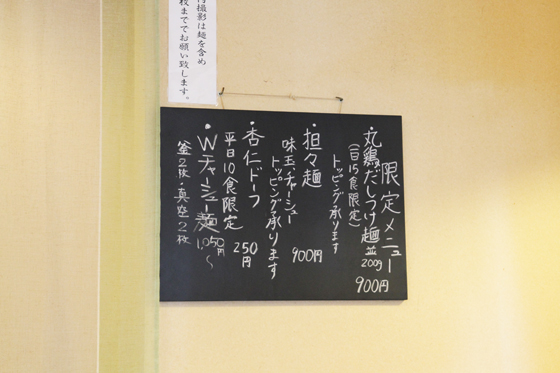 影は麺を含め
枚まででお願い致します。
限定メニュー
丸鶏だしつけ麺 並200g
900円
(一日15食限定)
トッピング承ります
・担々麺
900円
味玉・チャーシュー
トッピング承ります
・杏仁ドーフ
250円
平日10食限定
・Wチャーシュー麺
1,050円〜
釜2枚・真空2枚